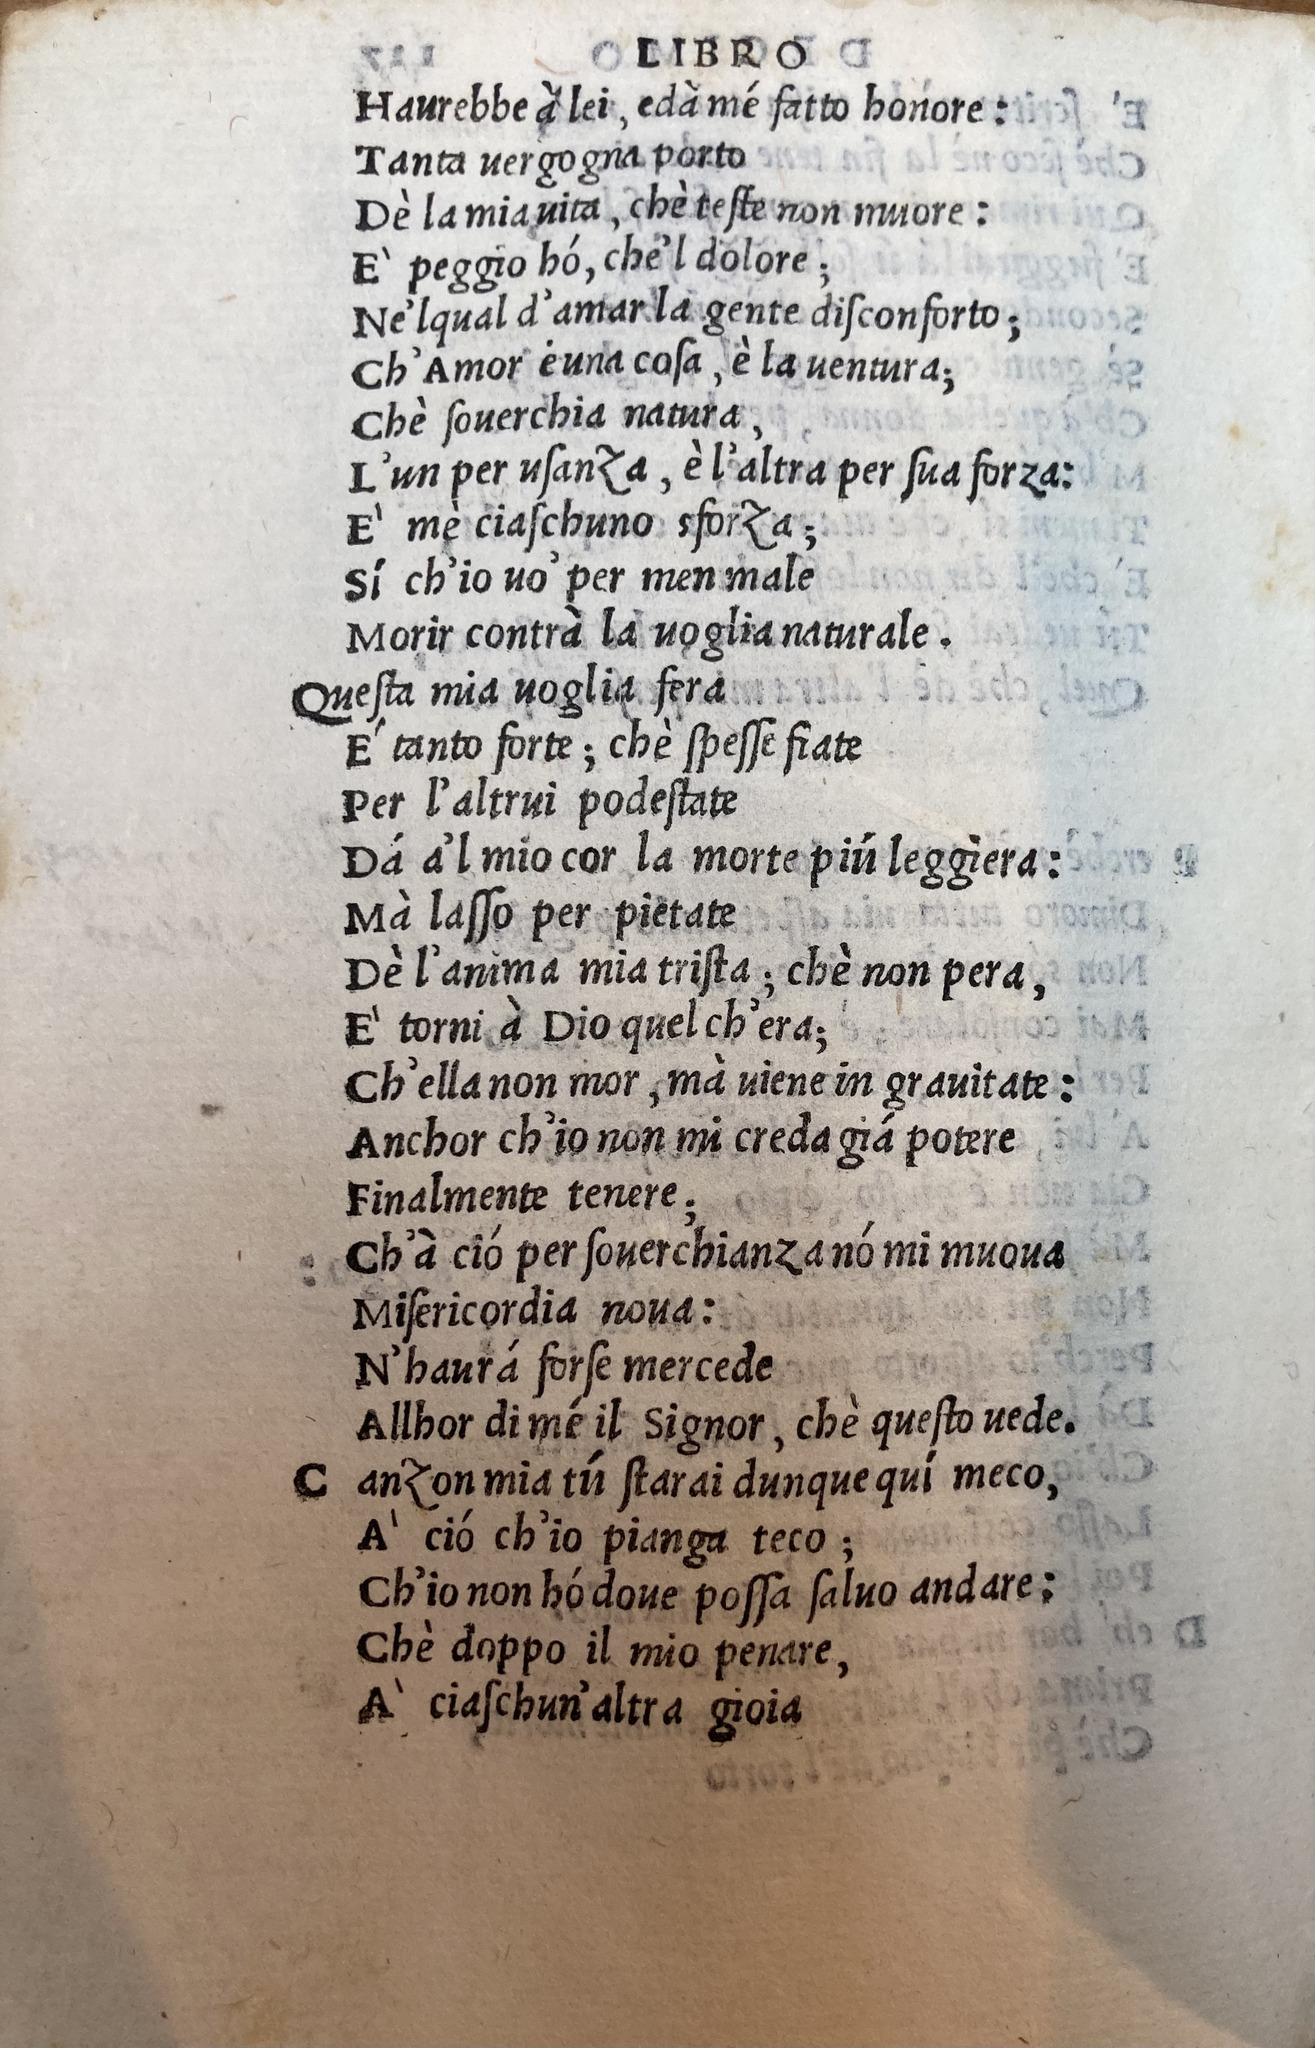 LIBRO
Haurebbe à lei, edà mé fatto honore:
Tanta uergogna porto
Dè la mia uita, chè teſte non muore:
E' peggio hó, che'l dolore;
Ne'lqual d'amar la gente diſconforto;
Ch'Amor è una coſa, è la uentura;
Chè ſouerchia natura,
L'un per uſanza, è l'altra per ſua forza:
E' mè ciaſchuno sforza;
Sí ch'io uo' per men male
Morir contrà la uoglia naturale.
Queſta mia uoglia fera
E' tanto forte; chè ſpeſſe fiate
Per l'altrui podeſtate
Dá a'l mio cor la morte piú leggiera:
Mà laſſo per pietate
Dè l'anima mia triſta; chè non pera,
E' torni à Dio quel ch'era;
Ch'ella non mor, mà uiene in grauitate:
Anchor ch'io non mi creda giá potere
Finalmente tenere;
Ch'à ció per ſouerchianza nó mi muoua
Miſericordia noua:
N'haurá forſe mercede
Allhor di mé il Signor, chè queſto uede.
Canzon mia tú ſtarai dunque quí meco,
A' ció ch'io pianga teco;
Ch'io non hó doue poſſa ſaluo andare:
Chè doppo il mio penare,
A' ciaſchun'altra gioia